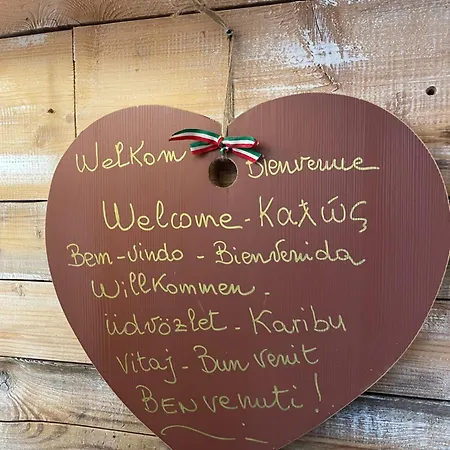 Welkom Bienvenue
Welcome - Καλώς
Bem-vindo - Bienvenida
Willkommen -
üdvözlet - Karibu
Vitaj - Bun venit
Benvenuti!